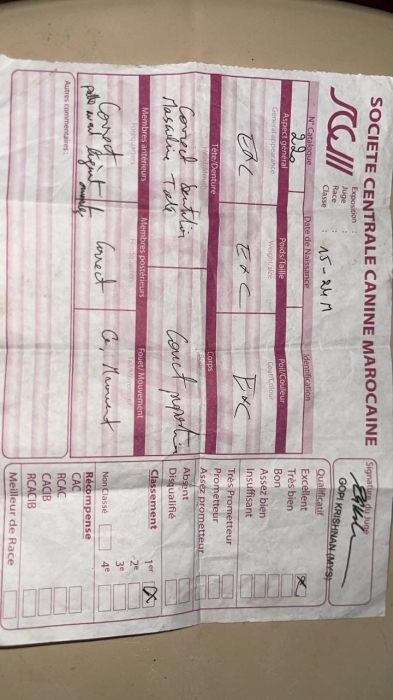 SOCIETE CENTRALE CANINE MAROCAINE
SCCM
Exposition :
Juge :
Race :
Classe : 15-24 M
N° Catalogue
Date de Naissance
Identification
220
Aspect général
Poids/Taille
Poil/Couleur
General appearance
Weight/size
Coat/Colour
EXC
EXC
EXC
Tête/Denture
Corps
Correct dentition
Masculine
Correct
Membres antérieurs
Membres postérieurs
Fouet/Mouvement
Correct
Correct
Mvment
Autres commentaires :
Signature du Juge
GOPI KRISHNAN (MYS)
Qualificatif
Excellent X
Très bien
Bon
Assez bien
Insuffisant
Très Prometteur
Prometteur
Assez prometteur
Absent
Disqualifié
Classement
1er X
2e
3e
Non Classé
4e
Récompense
CAC
RCAC
CACIB
RCACIB
Meilleur de Race